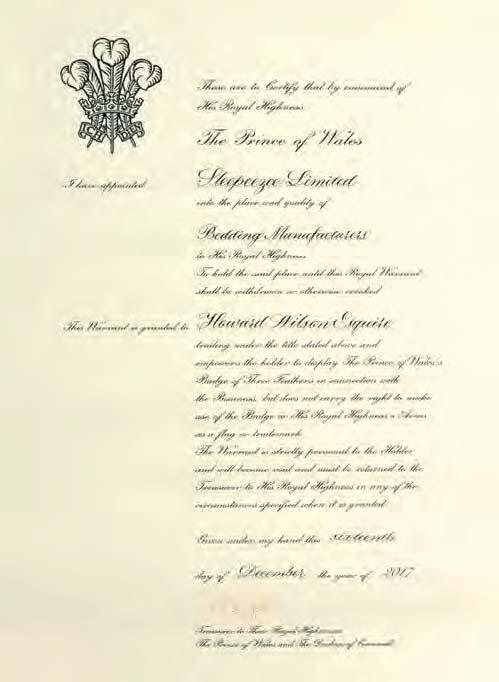 These are to Certify that by command of
His Royal Highness
The Prince of Wales
I have appointed
Sleepeezee Limited
into the place and quality of
Bedding Manufacturers
to His Royal Highness
To hold the said place until this Royal Warrant
shall be withdrawn or otherwise revoked
This Warrant is granted to Howard Wilson Esquire
trading under the title stated above and
empowers the holder to display The Prince of Wales's
Badge of Three Feathers in connection with
the Business, but does not carry the right to make
use of the Badge or His Royal Highness's Arms
as a flag or trademark
The Warrant is strictly personal to the Holder
and will become void and must be returned to the
Treasurer to His Royal Highness in any of the
circumstances specified when it is granted
Given under my hand this sixteenth
day of December the year of 2017
Treasurer to Their Royal Highnesses
The Prince of Wales and The Duchess of Cornwall